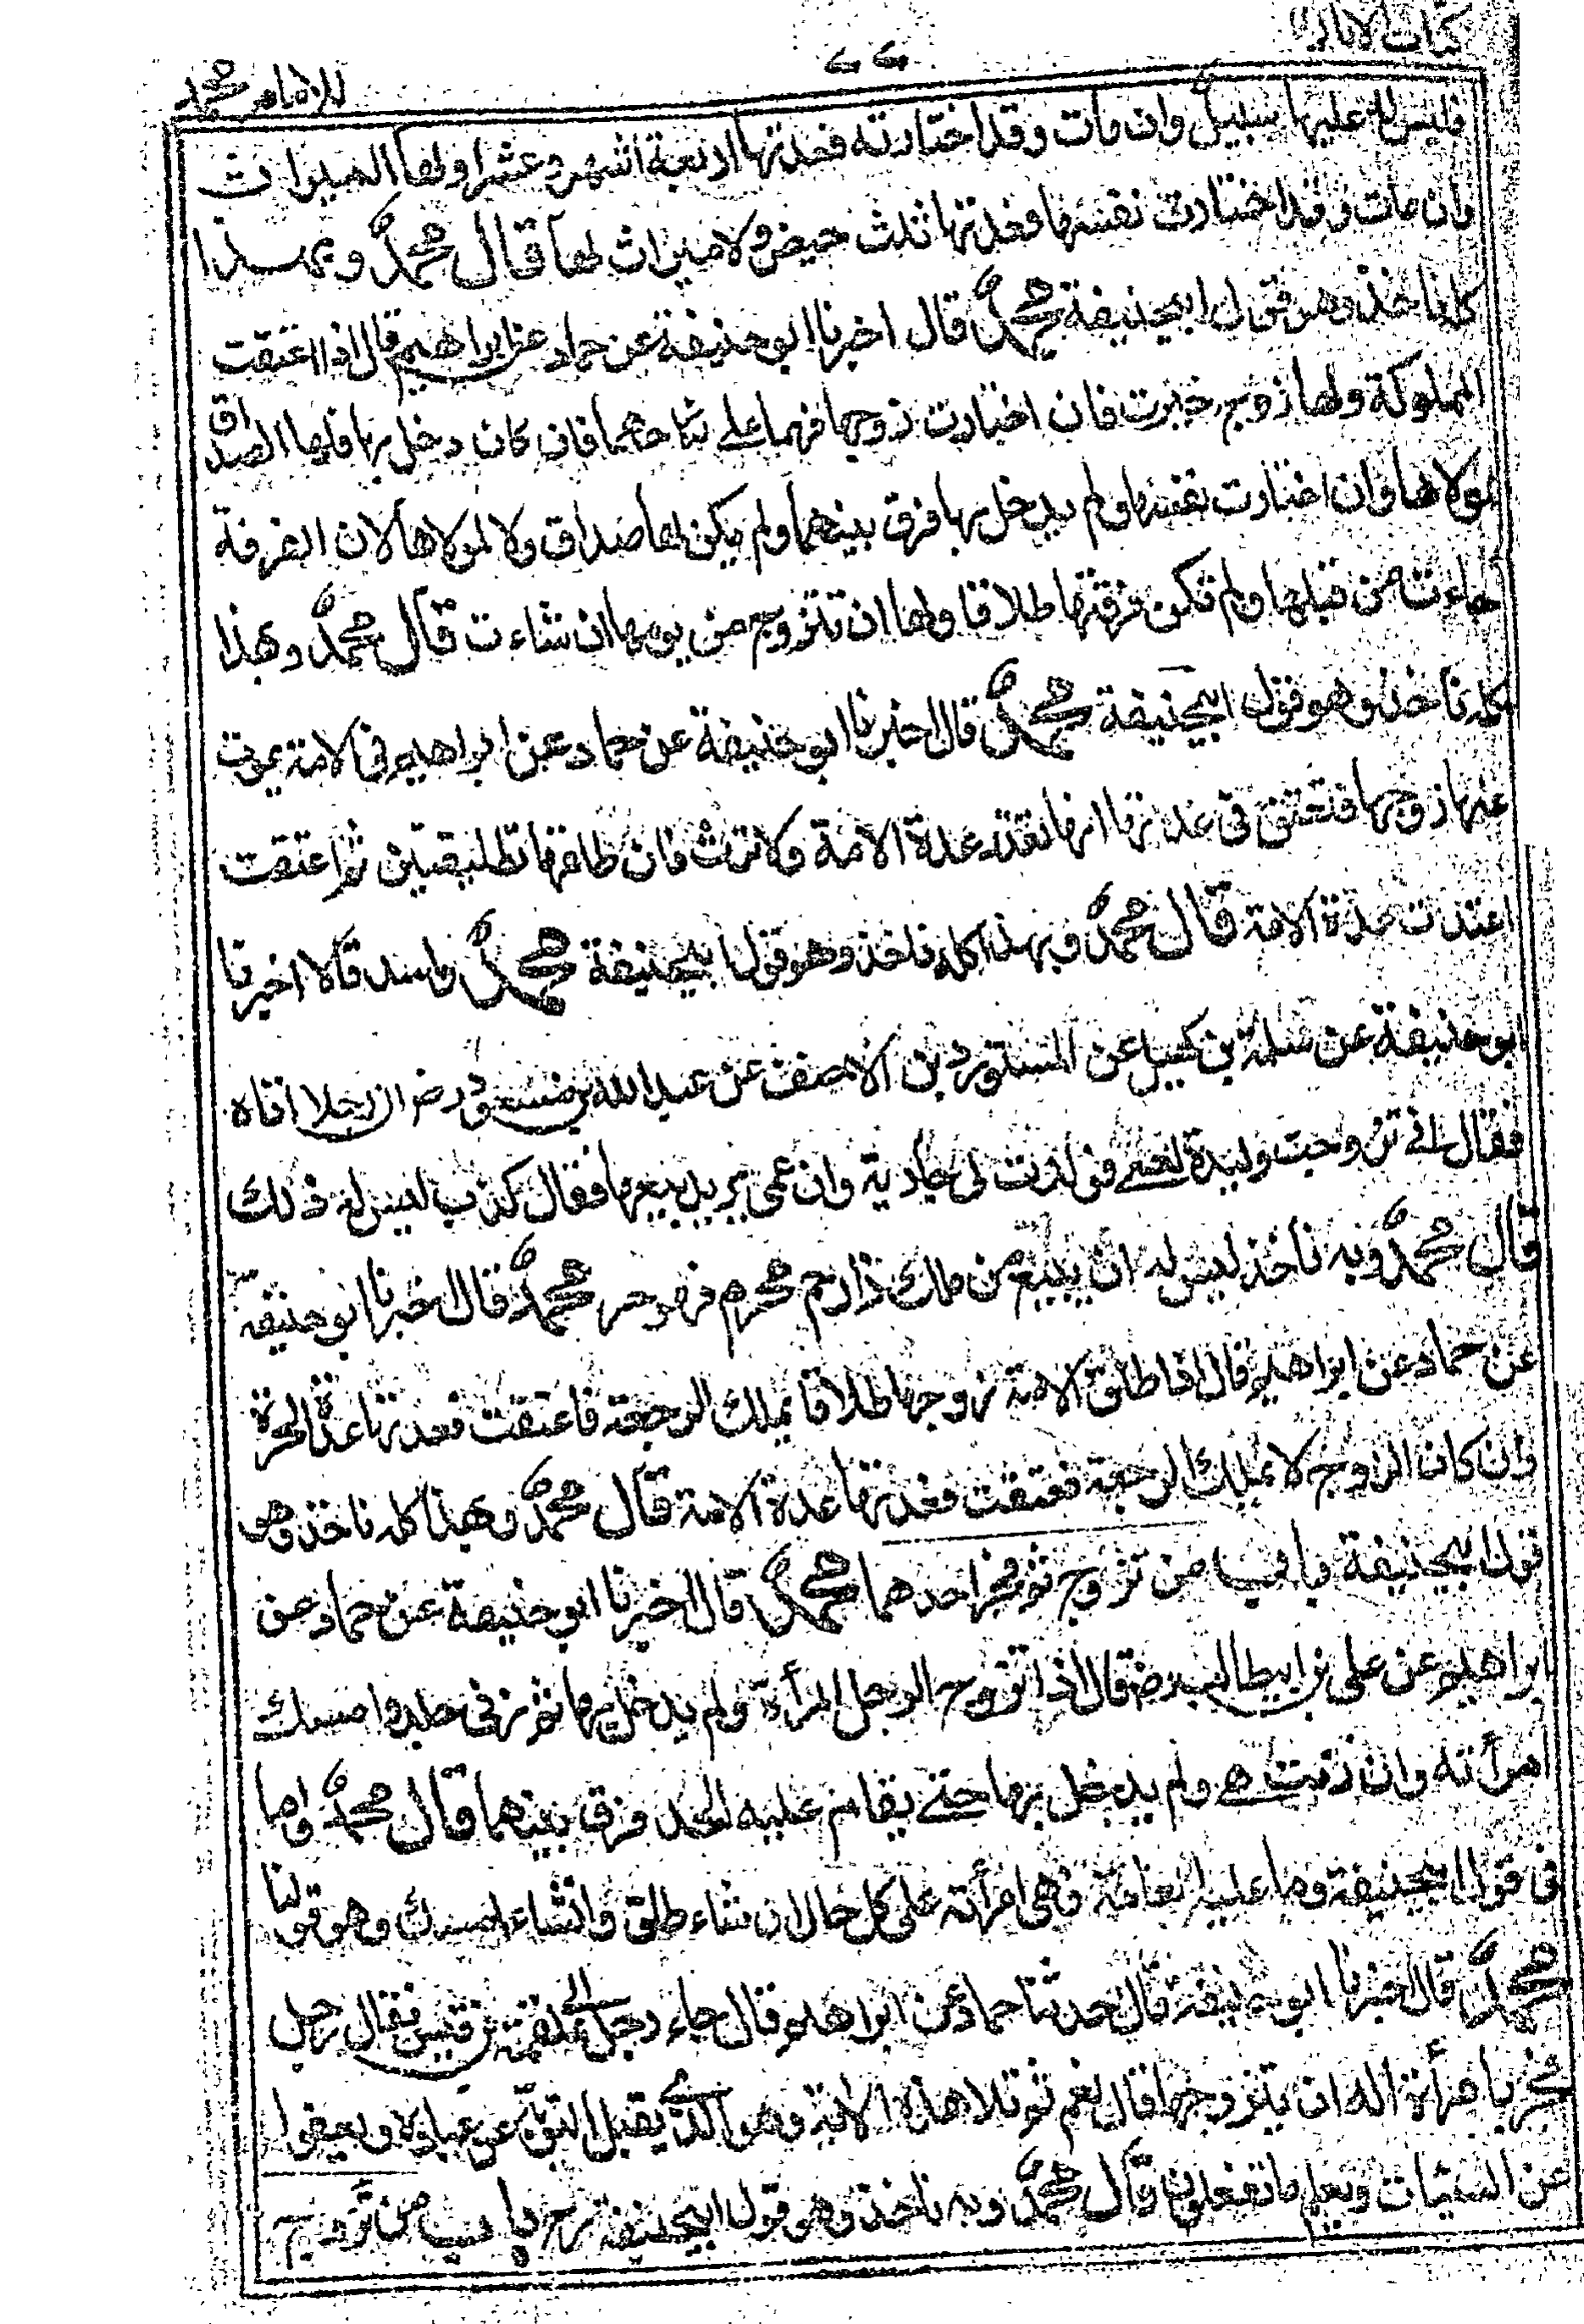 كتاب الآثار
٧٧
للامام محمد
فليس له عليها سبيل وان مات وقد اختارته فعدتها اربعة اشهر وعشرا ولها الميراث
وان مات وقد اختارت نفسها فعدتها ثلث حيض ولا ميراث لها قال محمد وبهذا
كله ناخذ وهو قول ابيحنيفة محمد قال اخبرنا ابو حنيفة عن حماد عن ابراهيم قال اذا اعتقت
المملوكة ولها زوج خيرت فان اختارت زوجها فهما على نكاحهما فان كان دخل بها فلها الصداق
لمولاها وان اختارت نفسها ولم يدخل بها فرق بينهما ولم يكن لها صداق ولا لمولاها لان الفرقة
جاءت من قبلها ولم تكن فرقتها طلاقا ولها ان تتزوج من يومها ان شاءت قال محمد وبهذا
كله ناخذ وهو قول ابيحنيفة محمد قال اخبرنا ابو حنيفة عن حماد عن ابراهيم فى الامة يموت
عنها زوجها فتعتق فى عدتها انها تعتد عدة الامة ولا ترث فان طلقها تطليقتين ثم اعتقت
اعتدت عدة الامة قال محمد وبهذا كله ناخذ وهو قول ابيحنيفة محمد واسد قالا اخبرنا
ابو حنيفة عن سلمة بن كهيل عن المستورد بن الاحنف عن عبد الله بن مسعود رض ان رجلا اتاه
فقال انى تزوجت وليدة لعمى فولدت لى جارية وان عمى يريد بيعها فقال كذب ليس له ذلك
قال محمد وبه ناخذ ليس له ان يبيع من ملك ذا رحم محرم فهو حر محمد قال اخبرنا ابو حنيفة
عن حماد عن ابراهيم قال اذا طلق الامة زوجها طلاقا يملك الرجعة فاعتقت فعدتها عدة الحرة
وان كان الزوج لا يملك الرجعة فعتقت فعدتها عدة الامة قال محمد وبهذا كله ناخذ وهو
قول ابيحنيفة باب من تزوج ثم فجر احدهما محمد قال اخبرنا ابو حنيفة عن حماد عن
ابراهيم عن على بن ابيطالب رض قال اذا تزوج الرجل المرأة ولم يدخل بها ثم زنى جلد وامسك
امرأته وان زنت هى ولم يدخل بها حتى يقام عليه الحد فرق بينهما قال محمد واما
فى قول ابيحنيفة وما عليه العامة فهى امرأته على كل حال ان شاء طلق وانشاء امسك وهو قولنا
محمد قال اخبرنا ابو حنيفة قال حدثنا حماد عن ابراهيم قال جاء رجل الى علقمة بن قيس فقال رجل
فجر بامرأة اله ان يتزوجها قال نعم ثم تلا هذه الاية وهو الذى يقبل التوبة عن عباده ويعفوا
عن السيئات ويعلم ما تفعلون قال محمد وبه ناخذ وهو قول ابيحنيفة رح باب من تزوج